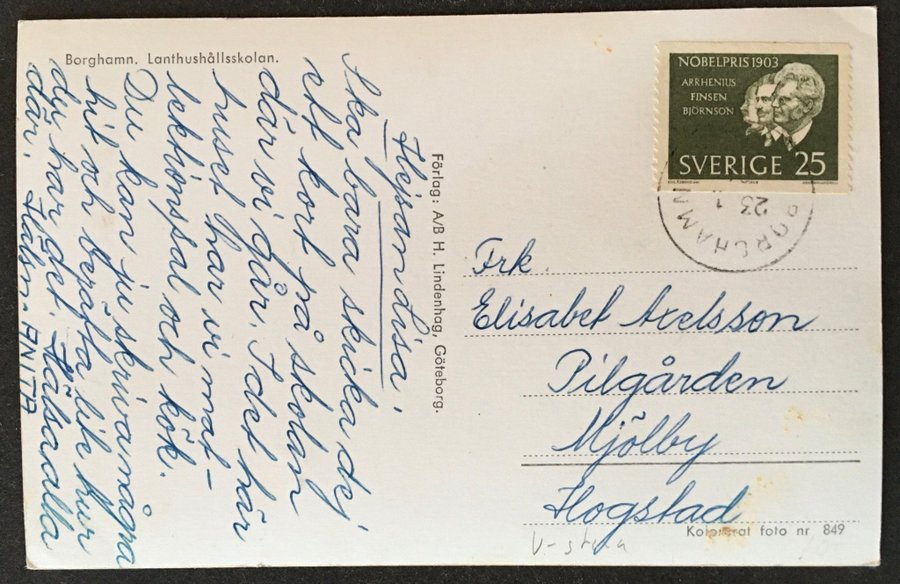 Borghamn. Lanthushållsskolan.
Hejsandisa!
Ska bara skicka dej
ett kort på skolan
där vi går. I det här
huset har vi mat-
lektionssal och kök.
Du kan ju skriva några
hit och berätta lite hur
du har det. Hälsa alla
där. Häls. ANITA
Förlag: A/B H. Lindenhag, Göteborg.
NOBELPRIS 1903
ARRHENIUS
FINSEN
BJÖRNSON
SVERIGE 25
BORGHAMN
23 1
Frk.
Elisabet Axelsson
Pilgården
Mjölby
Hogstad
Kolorerat foto nr 849